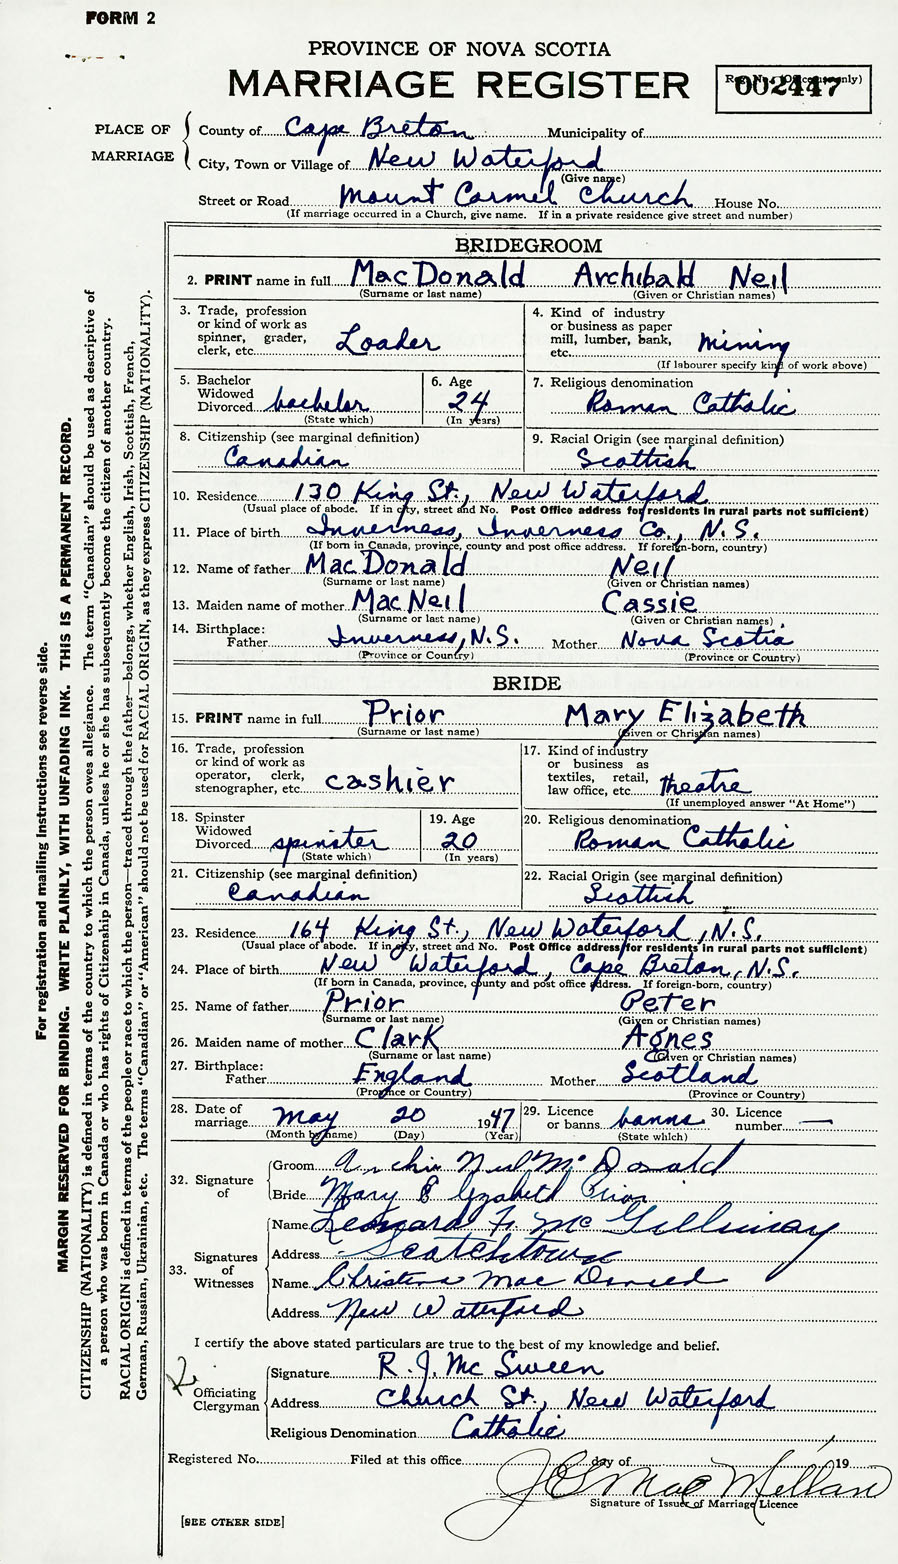 FORM 2
PROVINCE OF NOVA SCOTIA
MARRIAGE REGISTER
Reg. No. (Office use only)
002447
PLACE OF MARRIAGE
County of Cape Breton Municipality of
City, Town or Village of New Waterford
(Give name)
Street or Road Mount Carmel Church House No.
(If marriage occurred in a Church, give name. If in a private residence give street and number)
BRIDEGROOM
2. PRINT name in full MacDonald Archibald Neil
(Surname or last name) (Given or Christian names)
3. Trade, profession or kind of work as spinner, grader, clerk, etc. Loader
4. Kind of industry or business as paper mill, lumber, bank, etc. Mining
(If labourer specify kind of work above)
5. Bachelor Widowed Divorced bachelor
(State which)
6. Age 24
(In years)
7. Religious denomination
Roman Catholic
8. Citizenship (see marginal definition)
Canadian
9. Racial Origin (see marginal definition)
Scottish
10. Residence 130 King St., New Waterford
(Usual place of abode. If in city, street and No. Post Office address for residents in rural parts not sufficient)
11. Place of birth Inverness, Inverness Co., N.S.
(If born in Canada, province, county and post office address. If foreign-born, country)
12. Name of father MacDonald Neil
(Surname or last name) (Given or Christian names)
13. Maiden name of mother MacNeil Cassie
(Surname or last name) (Given or Christian names)
14. Birthplace: Father Inverness, N.S. Mother Nova Scotia
(Province or Country) (Province or Country)
BRIDE
15. PRINT name in full Prior Mary Elizabeth
(Surname or last name) (Given or Christian names)
16. Trade, profession or kind of work as operator, clerk, stenographer, etc. cashier
17. Kind of industry or business as textiles, retail, law office, etc. theatre
(If unemployed answer "At Home")
18. Spinster Widowed Divorced spinster
(State which)
19. Age 20
(In years)
20. Religious denomination
Roman Catholic
21. Citizenship (see marginal definition)
Canadian
22. Racial Origin (see marginal definition)
Scottish
23. Residence 164 King St., New Waterford, N.S.
(Usual place of abode. If in city, street and No. Post Office address for residents in rural parts not sufficient)
24. Place of birth New Waterford, Cape Breton, N.S.
(If born in Canada, province, county and post office address. If foreign-born, country)
25. Name of father Prior Peter
(Surname or last name) (Given or Christian names)
26. Maiden name of mother Clark Agnes
(Surname or last name) (Given or Christian names)
27. Birthplace: Father England Mother Scotland
(Province or Country) (Province or Country)
28. Date of marriage May 20 1947
(Month by name) (Day) (Year)
29. Licence or banns banns
(State which)
30. Licence number —
32. Signature of
Groom Archie Neil McDonald
Bride Mary Elizabeth Prior
33. Signatures of Witnesses
Name Leonard F. McGillivray
Address Scotchtown
Name Christina Mac
Address New Waterford
I certify the above stated particulars are true to the best of my knowledge and belief.
Officiating Clergyman
Signature R. J. McSween
Address Church St., New Waterford
Religious Denomination Catholic
Registered No. Filed at this office day of 19
MacMillan
Signature of Issuer of Marriage Licence
[SEE OTHER SIDE]
For registration and mailing instructions see reverse side.
MARGIN RESERVED FOR BINDING. WRITE PLAINLY, WITH UNFADING INK. THIS IS A PERMANENT RECORD.
CITIZENSHIP (NATIONALITY) is defined in terms of the country to which the person owes allegiance. The term "Canadian" should be used as descriptive of
a person who was born in Canada or who has rights of Citizenship in Canada, unless he or she has subsequently become the citizen of another country.
RACIAL ORIGIN is defined in terms of the people or race to which the person—traced through the father—belongs, whether English, Irish, Scottish, French,
German, Russian, Ukrainian, etc. The terms "Canadian" or "American" should not be used for RACIAL ORIGIN, as they express CITIZENSHIP (NATIONALITY).